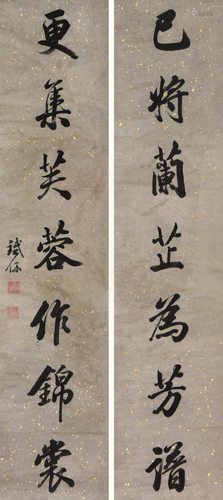 已将蘭芷為芳譜
更集芙蓉作錦裳
鐵保